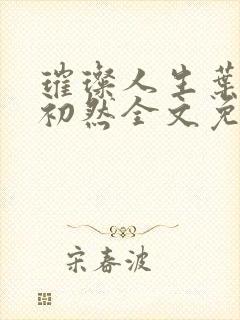 璀璨人生葉
初然全文免
宋春波